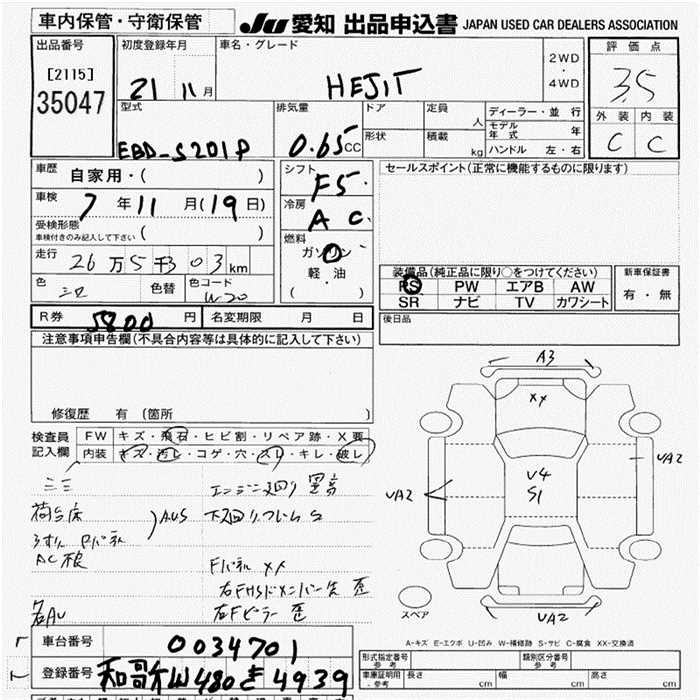 車内保管・守衛保管
JU 愛知 出品申込書 JAPAN USED CAR DEALERS ASSOCIATION
出品番号
[2115]
35047
初度登録年月
21 11月
車名・グレード
HEJIT
2WD
・
4WD
評価点
3.5
外装 内装
C C
型式
EBD-S201P
排気量
0.65cc
ドア
形状
定員 人
積載 kg
ディーラー・並行
モデル年式 年
ハンドル 左・右
車歴
自家用・( )
車検
7年11月(19日)
受検形態
車検付きのみ記入して下さい ( )
走行
26万5千303km
色 シロ 色替
色コード
W20
シフト
F5
冷房
AC
燃料
ガソリン
軽・油
( )
セールスポイント(正常に機能するものに限ります)
装備品(純正品に限り○をつけてください)
PS PW エアB AW
SR ナビ TV カワシート
新車保証書
有・無
R券 5800円
名変期限 月 日
後日品
注意事項申告欄(不具合内容等は具体的に記入して下さい)
修復歴 有(箇所 )
検査員
記入欄
FW キズ・飛石・ヒビ割・リペア跡・X要
内装 キズ・汚レ・コゲ・穴・スレ・キレ・破レ
エンジン廻り
荷台床
下廻り.フレム S
AUS
Pパネル
AC
Fパネル XX
右Fピラー 歪
A3
XX
U4
S1
UA2
UA2
UA2
スペア
A-キズ E-エクボ U-凹み W-補修跡 S-サビ C-腐食 XX-交換済
車台番号 0034701
登録番号 480 4939
型式指定番号
参考
類別区分番号
車庫証明用
参考
長さ cm
幅 cm
高さ cm